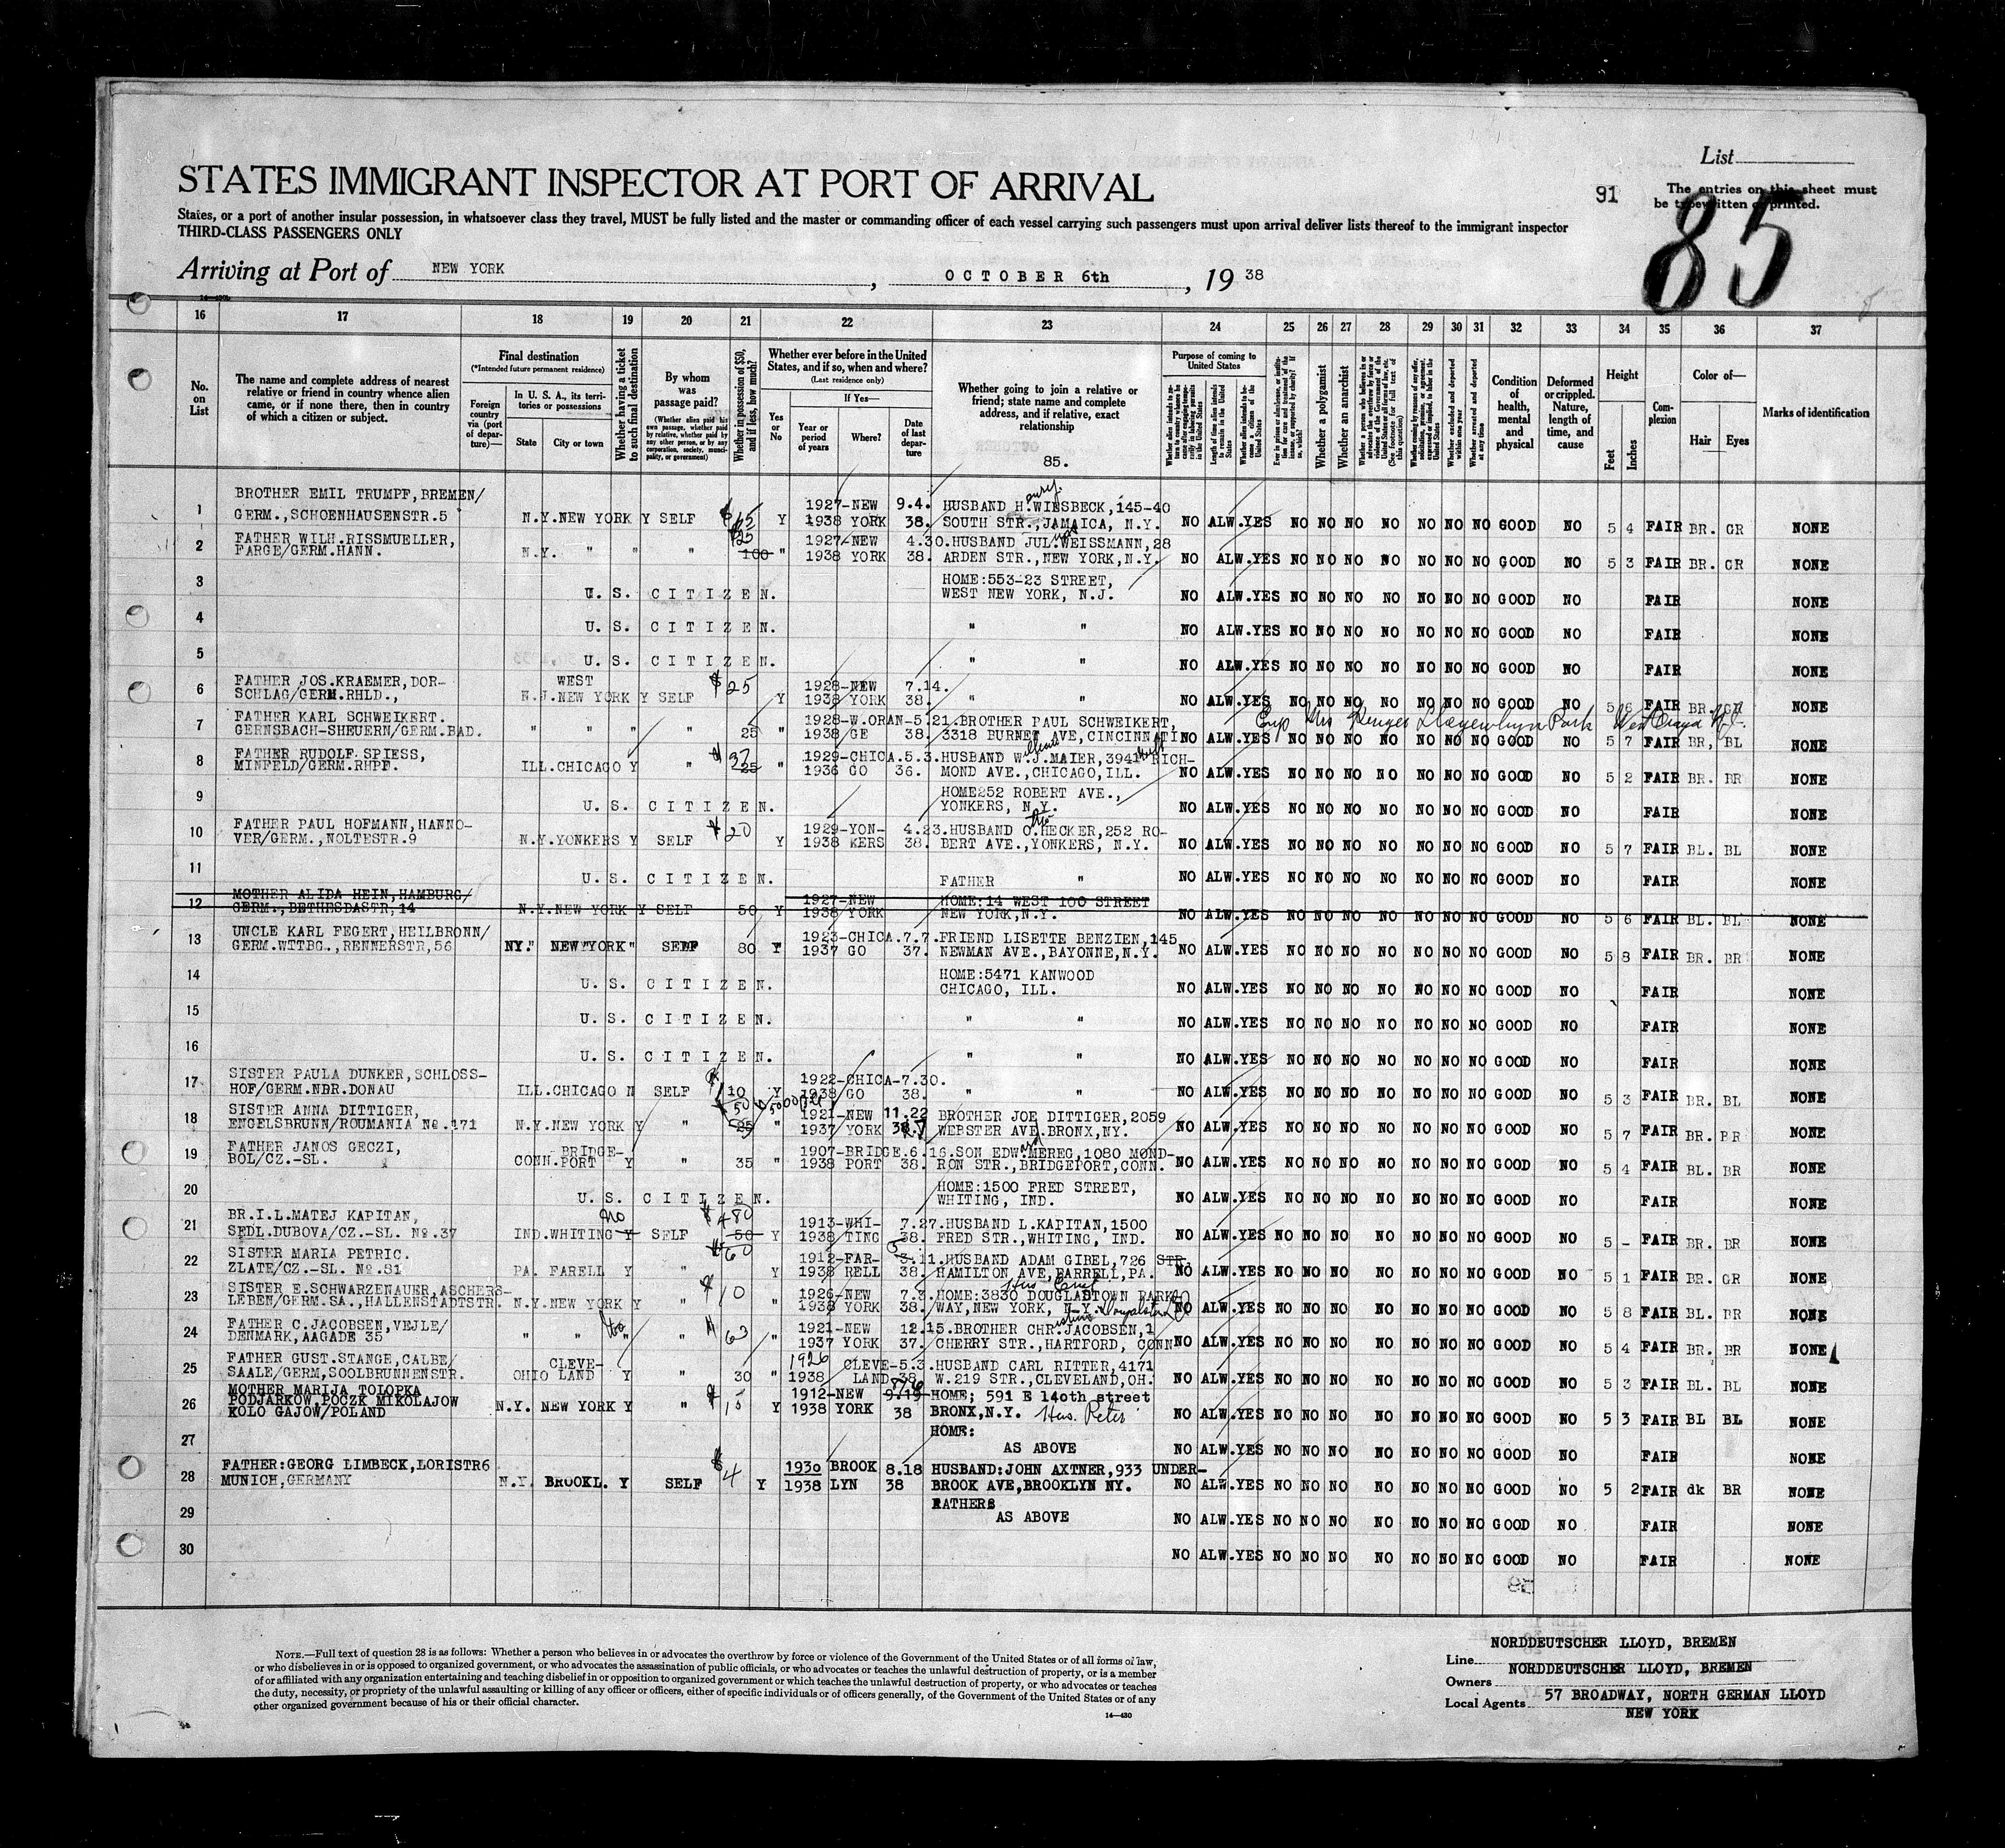 List
STATES IMMIGRANT INSPECTOR AT PORT OF ARRIVAL
91
The entries on this sheet must
be typewritten or printed.
85
States, or a port of another insular possession, in whatsoever class they travel, MUST be fully listed and the master or commanding officer of each vessel carrying such passengers must upon arrival deliver lists thereof to the immigrant inspector
THIRD-CLASS PASSENGERS ONLY
Arriving at Port of NEW YORK, OCTOBER 6th, 19 38
16 17 18 19 20 21 22 23 24 25 26 27 28 29 30 31 32 33 34 35 36 37
No. on List
The name and complete address of nearest relative or friend in country whence alien came, or if none there, then in country of which a citizen or subject.
Final destination
(*Intended future permanent residence)
Foreign country via (port of departure)—
In U. S. A., its territories or possessions
State
City or town
Whether having a ticket to such final destination
By whom was passage paid?
(Whether alien paid his own passage, whether paid by relative, whether paid by any other person, or by any corporation, society, municipality, or government)
Whether in possession of $50, and if less, how much?
Whether ever before in the United States, and if so, when and where?
(Last residence only)
Yes or No
If Yes—
Year or period of years
Where?
Date of last departure
Whether going to join a relative or friend; state name and complete address, and if relative, exact relationship
85.
Purpose of coming to United States
Length of time alien intends to remain in the United States
Whether alien intends to become a citizen of the United States
Whether a polygamist
Whether an anarchist
Whether excluded and deported within one year
Whether arrested and deported at any time
Condition of health, mental and physical
Deformed or crippled. Nature, length of time, and cause
Height
Feet
Inches
Complexion
Color of—
Hair
Eyes
Marks of identification
1 BROTHER EMIL TRUMPF, BREMEN/ 1927-NEW 9.4. HUSBAND H. WIESBECK, 145-40
GERM., SCHOENHAUSENSTR. 5 N.Y. NEW YORK Y SELF Y 1938 YORK 38. SOUTH STR., JAMAICA, N.Y. NO ALW. YES NO NO NO NO NO NO NO GOOD NO 5 4 FAIR BR. GR NONE
2 FATHER WILH. RISSMUELLER, 25 1927-NEW 4.30. HUSBAND JUL. WEISSMANN, 28
FARGE/GERM. HANN. N.Y. " " " " 100 " 1938 YORK 38. ARDEN STR., NEW YORK, N.Y. NO ALW. YES NO NO NO NO NO NO NO GOOD NO 5 3 FAIR BR. GR NONE
3 HOME: 553-23 STREET,
U. S. CITIZEN. WEST NEW YORK, N.J. NO ALW. YES NO NO NO NO NO NO NO GOOD NO FAIR NONE
4 U. S. CITIZEN. " " NO ALW. YES NO NO NO NO NO NO NO GOOD NO FAIR NONE
5 U. S. CITIZEN. " " NO ALW. YES NO NO NO NO NO NO NO GOOD NO FAIR NONE
6 FATHER JOS. KRAEMER, DOR- WEST $25 1928-NEW 7.14.
SCHLAG/GERM. RHLD., N.J. NEW YORK Y SELF Y 1938 YORK 38. " " NO ALW. YES NO NO NO NO NO NO NO GOOD NO 5 6 FAIR BR. GR NONE
7 FATHER KARL SCHWEIKERT. 1928-W. ORAN- 5.21. BROTHER PAUL SCHWEIKERT, Emp Mrs Llewellyn Park West Orange N.J.
GERNSBACH-SHEUERN/GERM. BAD. " " " " 25 " 1938 GE 38. 3318 BURNET AVE, CINCINNATI NO ALW. YES NO NO NO NO NO NO NO GOOD NO 5 7 FAIR BR, BL NONE
8 FATHER RUDOLF SPIESS, $37 1929-CHICA. 5.3. HUSBAND W. J. MAIER, 3941 RICH-
MINFELD/GERM. RHPF. ILL. CHICAGO Y " 25 " 1936 GO 36. MOND AVE., CHICAGO, ILL. NO ALW. YES NO NO NO NO NO NO NO GOOD NO 5 2 FAIR BR. BR NONE
9 HOME 252 ROBERT AVE.,
U. S. CITIZEN. YONKERS, N.Y. NO ALW. YES NO NO NO NO NO NO NO GOOD NO FAIR NONE
10 FATHER PAUL HOFMANN, HANNO- $20 1929-YON- 4.23. HUSBAND O. HECKER, 252 RO-
VER/GERM., NOLTESTR. 9 N.Y. YONKERS Y SELF Y 1938 KERS 38. BERT AVE., YONKERS, N.Y. NO ALW. YES NO NO NO NO NO NO NO GOOD NO 5 7 FAIR BL. BL NONE
11 U. S. CITIZEN. FATHER " NO ALW. YES NO NO NO NO NO NO NO GOOD NO FAIR NONE
12 MOTHER ALIDA HEIN, HAMBURG/ 1927-NEW HOME: 14 WEST 100 STREET
GERM., BETHESDASTR, 14 N.Y. NEW YORK Y SELF 50 Y 1938 YORK NEW YORK, N.Y. NO ALW. YES NO NO NO NO NO NO NO GOOD NO 5 6 FAIR BL. BL NONE
13 UNCLE KARL FEGERT, HEILBRONN/ 1923-CHICA. 7.7. FRIEND LISETTE BENZIEN, 145
GERM. WTTBG., RENNERSTR, 56 NY." NEW YORK" SELF 80 Y 1937 GO 37. NEWMAN AVE., BAYONNE, N.Y. NO ALW. YES NO NO NO NO NO NO NO GOOD NO 5 8 FAIR BR. BR NONE
14 HOME: 5471 KANWOOD
U. S. CITIZEN. CHICAGO, ILL. NO ALW. YES NO NO NO NO NO NO NO GOOD NO FAIR NONE
15 U. S. CITIZEN. " " NO ALW. YES NO NO NO NO NO NO NO GOOD NO FAIR NONE
16 U. S. CITIZEN. " " NO ALW. YES NO NO NO NO NO NO NO GOOD NO FAIR NONE
17 SISTER PAULA DUNKER, SCHLOSS- 1922-CHICA- 7.30.
HOF/GERM. NBR. DONAU ILL. CHICAGO N SELF 10 Y 1938 GO 38. " " NO ALW. YES NO NO NO NO NO NO NO GOOD NO 5 3 FAIR BR. BL NONE
18 SISTER ANNA DITTIGER, 50 1921-NEW 11.22 BROTHER JOE DITTIGER, 2059
ENGELSBRUNN/ROUMANIA No. 171 N.Y. NEW YORK Y " 25 " 1937 YORK WEBSTER AVE. BRONX, NY. NO ALW. YES NO NO NO NO NO NO NO GOOD NO 5 7 FAIR BR. BR NONE
19 FATHER JANOS GECZI, BRIDGE- 1907-BRIDGE. 6.16. SON EDW. MEREG, 1080 MOND-
BOL/CZ.-SL. CONN. PORT Y " 35 " 1938 PORT 38. RON STR., BRIDGEPORT, CONN. NO ALW. YES NO NO NO NO NO NO NO GOOD NO 5 4 FAIR BL. BR NONE
20 HOME: 1500 FRED STREET,
U. S. CITIZEN. WHITING, IND. NO ALW. YES NO NO NO NO NO NO NO GOOD NO FAIR NONE
21 BR. I. L. MATEJ KAPITAN, no $480 1913-WHI- 7.27. HUSBAND L. KAPITAN, 1500
SEDL. DUBOVA/CZ.-SL. No. 37 IND. WHITING Y SELF 50 Y 1938 TING 38. FRED STR., WHITING, IND. NO ALW. YES NO NO NO NO NO NO NO GOOD NO 5 - FAIR BR. BR NONE
22 SISTER MARIA PETRIC. $60 1912-FAR- 3.11. HUSBAND ADAM GIBEL, 726 STR.
ZLATE/CZ.-SL. No. 81 PA. FARELL Y " Y 1938 RELL 38. HAMILTON AVE, FARRELL, PA. NO ALW. YES NO NO NO NO NO NO NO GOOD NO 5 1 FAIR BR. GR NONE
23 SISTER E. SCHWARZENAUER, ASCHERS- $10 1926-NEW 7.3. HOME: 3830 DOUGLASTOWN PARK
LEBEN/GERM. SA., HALLENSTADTSTR. N.Y. NEW YORK Y " " 1938 YORK 38. WAY, NEW YORK, N.Y. NO ALW. YES NO NO NO NO NO NO NO GOOD NO 5 8 FAIR BL. BR NONE
24 FATHER C. JACOBSEN, VEJLE/ no 1921-NEW 12.15. BROTHER CHR. JACOBSEN, 1
DENMARK, AAGADE 35 " " " " 63 " 1937 YORK 37. CHERRY STR., HARTFORD, CONN NO ALW. YES NO NO NO NO NO NO NO GOOD NO 5 4 FAIR BR. BR NONE
25 FATHER GUST. STANGE, CALBE/ CLEVE- 1926 CLEVE- 5.3. HUSBAND CARL RITTER, 4171
SAALE/GERM, SOOLBRUNNENSTR. OHIO LAND Y " 30 " 1938 LAND 38. W. 219 STR., CLEVELAND, OH. NO ALW. YES NO NO NO NO NO NO NO GOOD NO 5 3 FAIR BL. BL NONE
26 MOTHER MARIJA TOLOPKA 1912-NEW 9/19 HOME; 591 E 140th street
PODJARKOW, POCZK MIKOLAJOW N.Y. NEW YORK Y " 15 Y 1938 YORK 38 BRONX, N.Y. Hus. Peter NO ALW. YES NO NO NO NO NO NO NO GOOD NO 5 3 FAIR BL BL NONE
KOLO GAJOW/POLAND
27 HOME:
AS ABOVE NO ALW. YES NO NO NO NO NO NO NO GOOD NO FAIR NONE
28 FATHER: GEORG LIMBECK, LORISTR6 $4 1930 BROOK 8.18 HUSBAND: JOHN AXTNER, 933 UNDER-
MUNICH, GERMANY N.Y. BROOKL. Y SELF Y 1938 LYN 38 BROOK AVE, BROOKLYN NY. NO ALW. YES NO NO NO NO NO NO NO GOOD NO 5 2 FAIR dk BR NONE
29 FATHERS
AS ABOVE NO ALW. YES NO NO NO NO NO NO NO GOOD NO FAIR NONE
30 NO ALW. YES NO NO NO NO NO NO NO GOOD NO FAIR NONE
NOTE.—Full text of question 28 is as follows: Whether a person who believes in or advocates the overthrow by force or violence of the Government of the United States or of all forms of law,
or who disbelieves in or is opposed to organized government, or who advocates the assassination of public officials, or who advocates or teaches the unlawful destruction of property, or is a member
of or affiliated with any organization entertaining and teaching disbelief in or opposition to organized government or which teaches the unlawful destruction of property, or who advocates or teaches
the duty, necessity, or propriety of the unlawful assaulting or killing of any officer or officers, either of specific individuals or of officers generally, of the Government of the United States or of any
other organized government because of his or their official character.
14—430
NORDDEUTSCHER LLOYD, BREMEN
Line
NORDDEUTSCHER LLOYD, BREMEN
Owners
Local Agents 57 BROADWAY, NORTH GERMAN LLOYD
NEW YORK